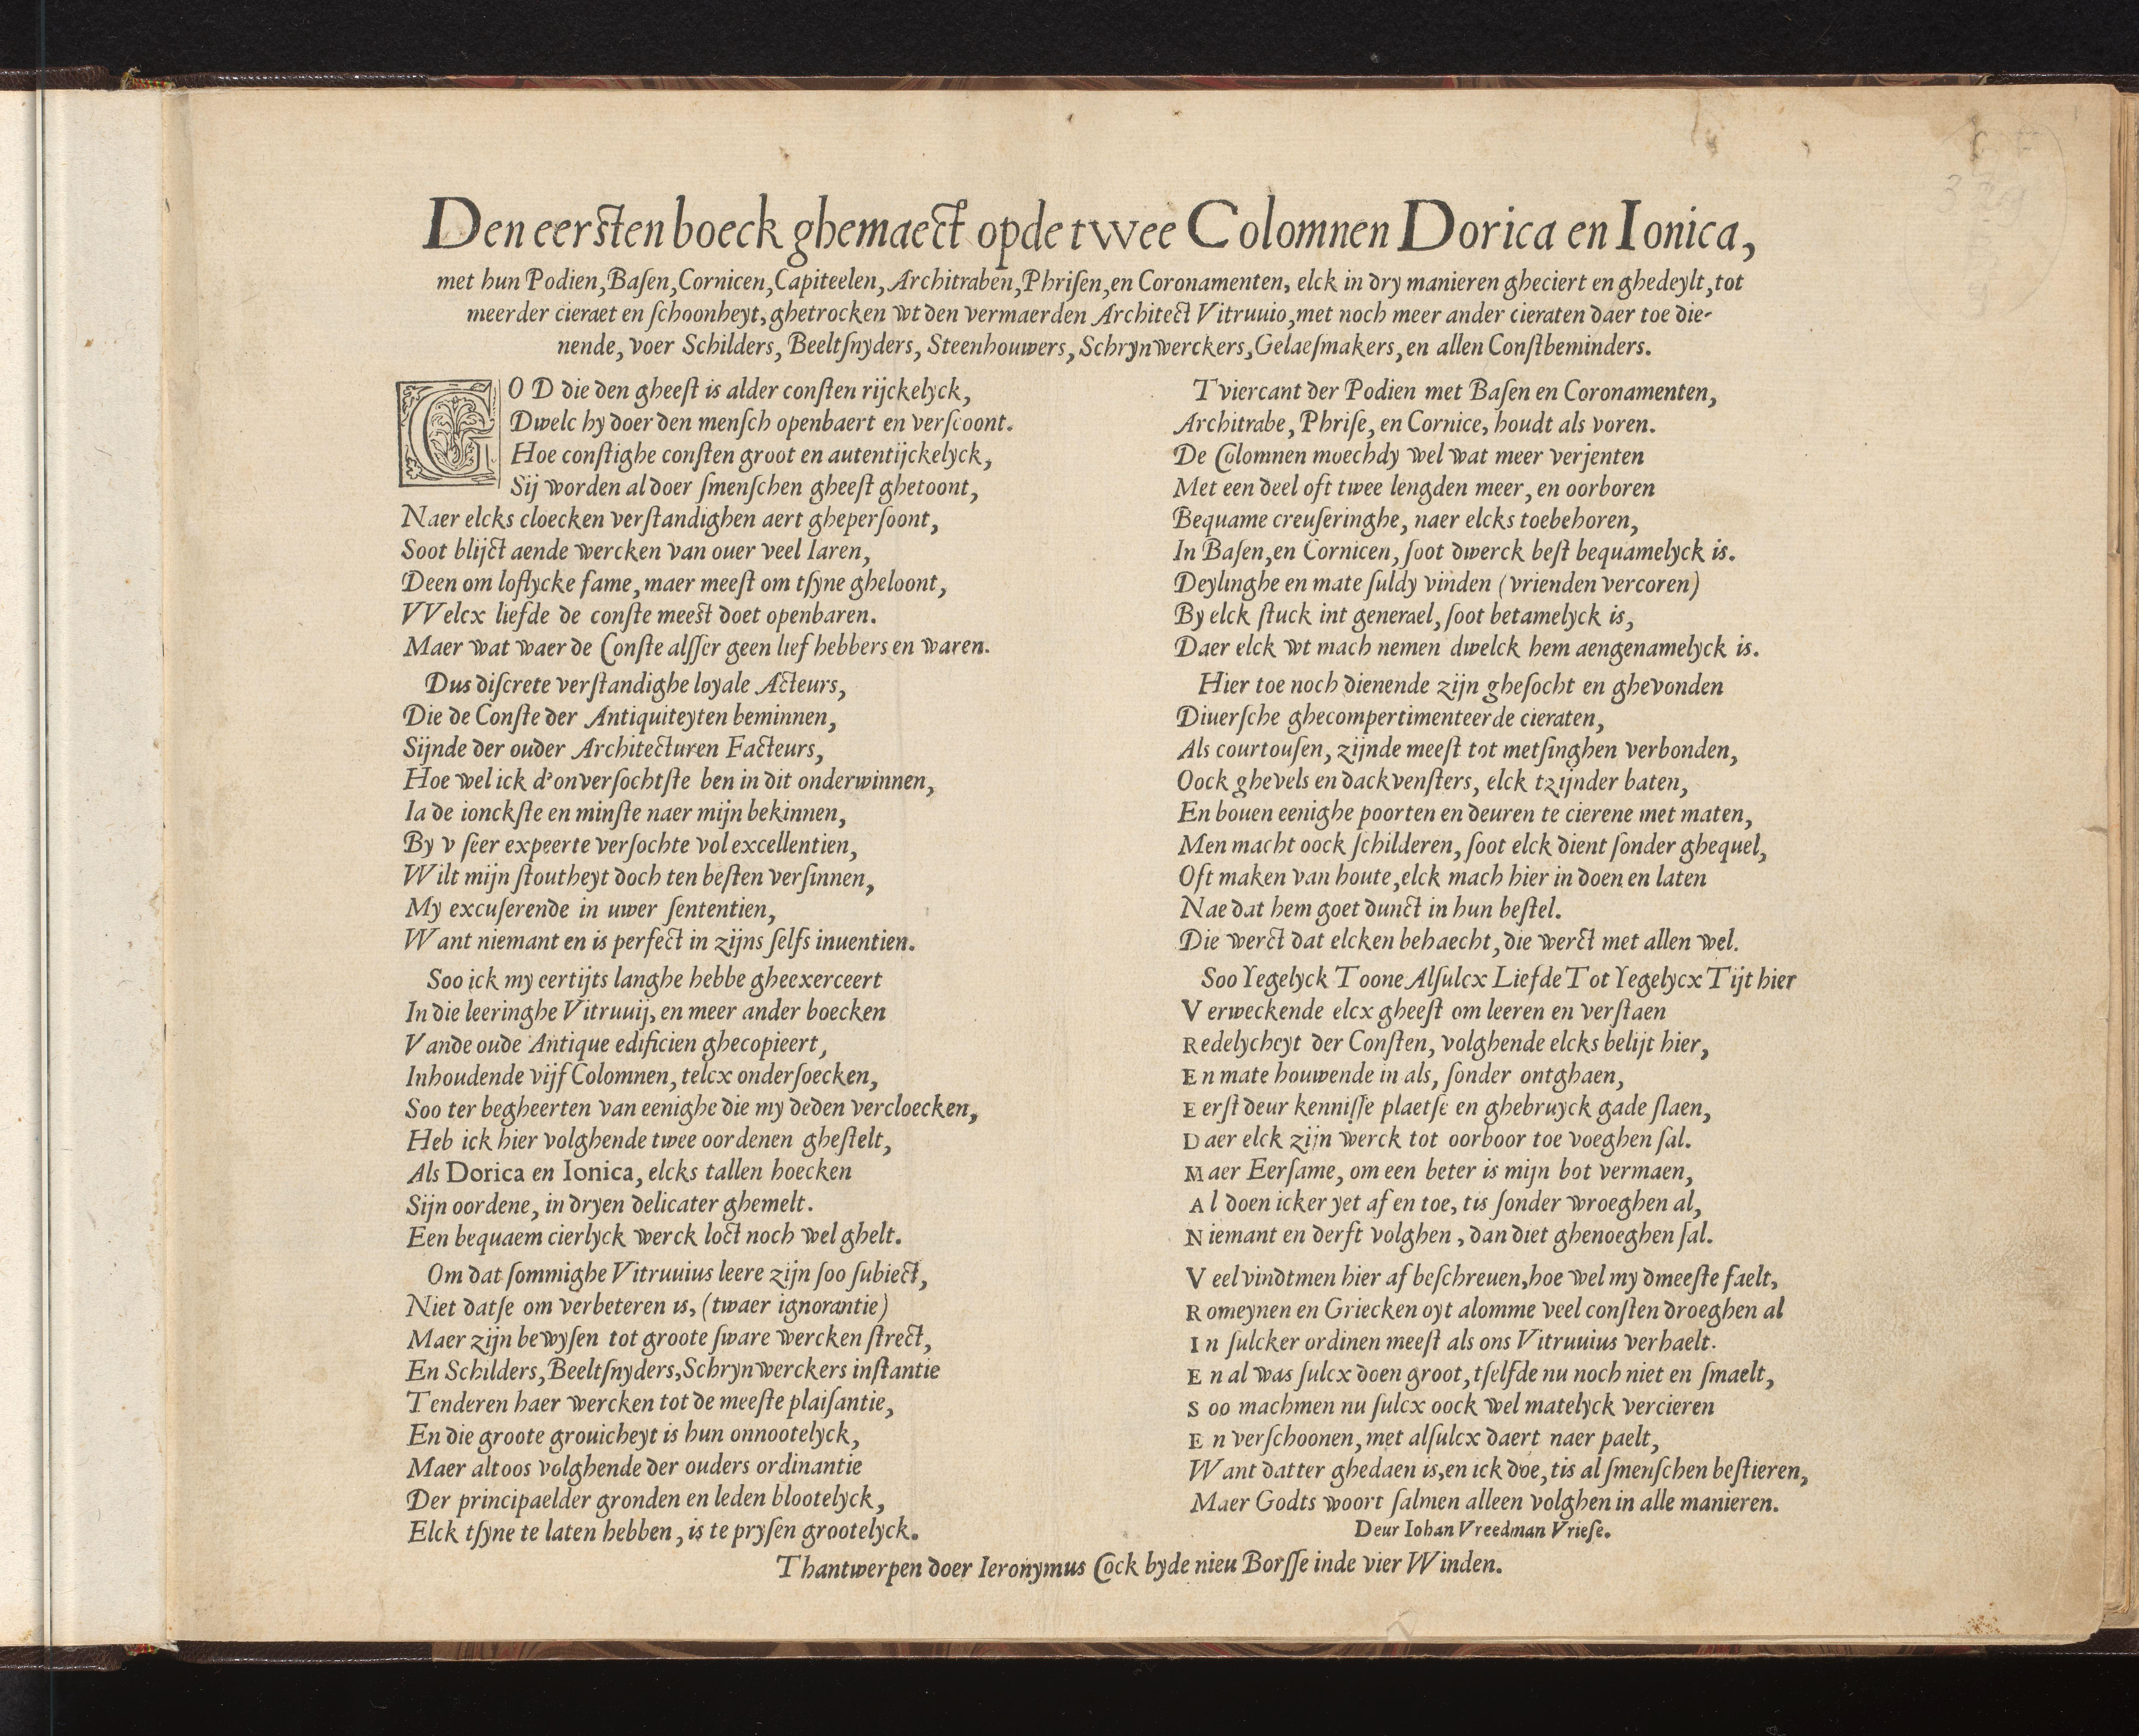 Den eersten boeck ghemaect opde twee Colomnen Dorica en Ionica,
met hun Podien, Baſen, Cornicen, Capiteelen, Architraben, Phriſen, en Coronamenten, elck in dry manieren gheciert en ghedeylt, tot
meerder cieraet en ſchoonheyt, ghetrocken wt den vermaerden Architect Vitruuio, met noch meer ander cieraten daer toe die-
nende, voer Schilders, Beeltſnyders, Steenhouwers, Schrynwerckers, Gelaeſmakers, en allen Conſtbeminders.
GOD die den gheeſt is alder conſten rijckelyck,
Dwelc hy doer den menſch openbaert en verſcoont.
Hoe conſtighe conſten groot en autentijckelyck,
Sij worden al doer ſmenſchen gheeſt ghetoont,
Naer elcks cloecken verſtandighen aert gheperſoont,
Soot blijct aende wercken van ouer veel Iaren,
Deen om loflycke fame, maer meeſt om tſyne gheloont,
VVelcx liefde de conſte meest doet openbaren.
Maer wat waer de Conſte alſſer geen lief hebbers en waren.
Dus diſcrete verſtandighe loyale Acteurs,
Die de Conſte der Antiquiteyten beminnen,
Sijnde der ouder Architecturen Facteurs,
Hoe wel ick d'onverſochtſte ben in dit onderwinnen,
Ia de ionckſte en minſte naer mijn bekinnen,
By v ſeer expeerte verſochte vol excellentien,
Wilt mijn ſtoutheyt doch ten beſten verſinnen,
My excuſerende in uwer ſententien,
Want niemant en is perfect in zijns ſelfs inuentien.
Soo ick my eertijts langhe hebbe gheexerceert
In die leeringhe Vitruuij, en meer ander boecken
Vande oude Antique edificien ghecopieert,
Inhoudende vijf Colomnen, telcx onderſoecken,
Soo ter begheerten van eenighe die my deden vercloecken,
Heb ick hier volghende twee oordenen gheſtelt,
Als Dorica en Ionica, elcks tallen hoecken
Sijn oordene, in dryen delicater ghemelt.
Een bequaem cierlyck werck loct noch wel ghelt.
Om dat ſommighe Vitruuius leere zijn ſoo ſubiect,
Niet datſe om verbeteren is, (twaer ignorantie)
Maer zijn bewyſen tot groote ſware wercken ſtrect,
En Schilders, Beeltſnyders, Schrynwerckers inſtantie
Tenderen haer wercken tot de meeſte plaiſantie,
En die groote grouicheyt is hun onnootelyck,
Maer altoos volghende der ouders ordinantie
Der principaelder gronden en leden blootelyck,
Elck tſyne te laten hebben, is te pryſen grootelyck.
Tviercant der Podien met Baſen en Coronamenten,
Architrabe, Phriſe, en Cornice, houdt als voren.
De Colomnen moechdy wel wat meer verjenten
Met een deel oft twee lengden meer, en oorboren
Bequame creuſeringhe, naer elcks toebehoren,
In Baſen, en Cornicen, ſoot dwerck beſt bequamelyck is.
Deylinghe en mate ſuldy vinden (vrienden vercoren)
By elck ſtuck int generael, ſoot betamelyck is,
Daer elck wt mach nemen dwelck hem aengenamelyck is.
Hier toe noch dienende zijn gheſocht en ghevonden
Diuerſche ghecompertimenteerde cieraten,
Als courtouſen, zijnde meeſt tot metſinghen verbonden,
Oock ghevels en dackvenſters, elck tzijnder baten,
En bouen eenighe poorten en deuren te cierene met maten,
Men macht oock ſchilderen, ſoot elck dient ſonder ghequel,
Oft maken van houte, elck mach hier in doen en laten
Nae dat hem goet dunct in hun beſtel.
Die werct dat elcken behaecht, die werct met allen wel.
Soo Yegelyck Toone Alſulcx Liefde Tot Yegelycx Tijt hier
Verweckende elcx gheeſt om leeren en verſtaen
Redelycheyt der Conſten, volghende elcks belijt hier,
En mate houwende in als, ſonder ontghaen,
Eerſt deur kenniſſe plaetſe en ghebruyck gade ſlaen,
Daer elck zijn werck tot oorboor toe voeghen ſal.
Maer Eerſame, om een beter is mijn bot vermaen,
Al doen icker yet af en toe, tis ſonder wroeghen al,
Niemant en derft volghen, dan diet ghenoeghen ſal.
Veel vindtmen hier af beſchreuen, hoe wel my dmeeſte faelt,
Romeynen en Griecken oyt alomme veel conſten droeghen al
In ſulcker ordinen meeſt als ons Vitruuius verhaelt.
En al was ſulcx doen groot, tſelfde nu noch niet en ſmaelt,
Soo machmen nu ſulcx oock wel matelyck vercieren
En verſchoonen, met alſulcx daert naer paelt,
Want datter ghedaen is, en ick doe, tis al ſmenſchen beſtieren,
Maer Godts woort ſalmen alleen volghen in alle manieren.
Deur Iohan Vreedman Vrieſe.
Thantwerpen doer Ieronymus Cock byde nieu Borſſe inde vier Winden.